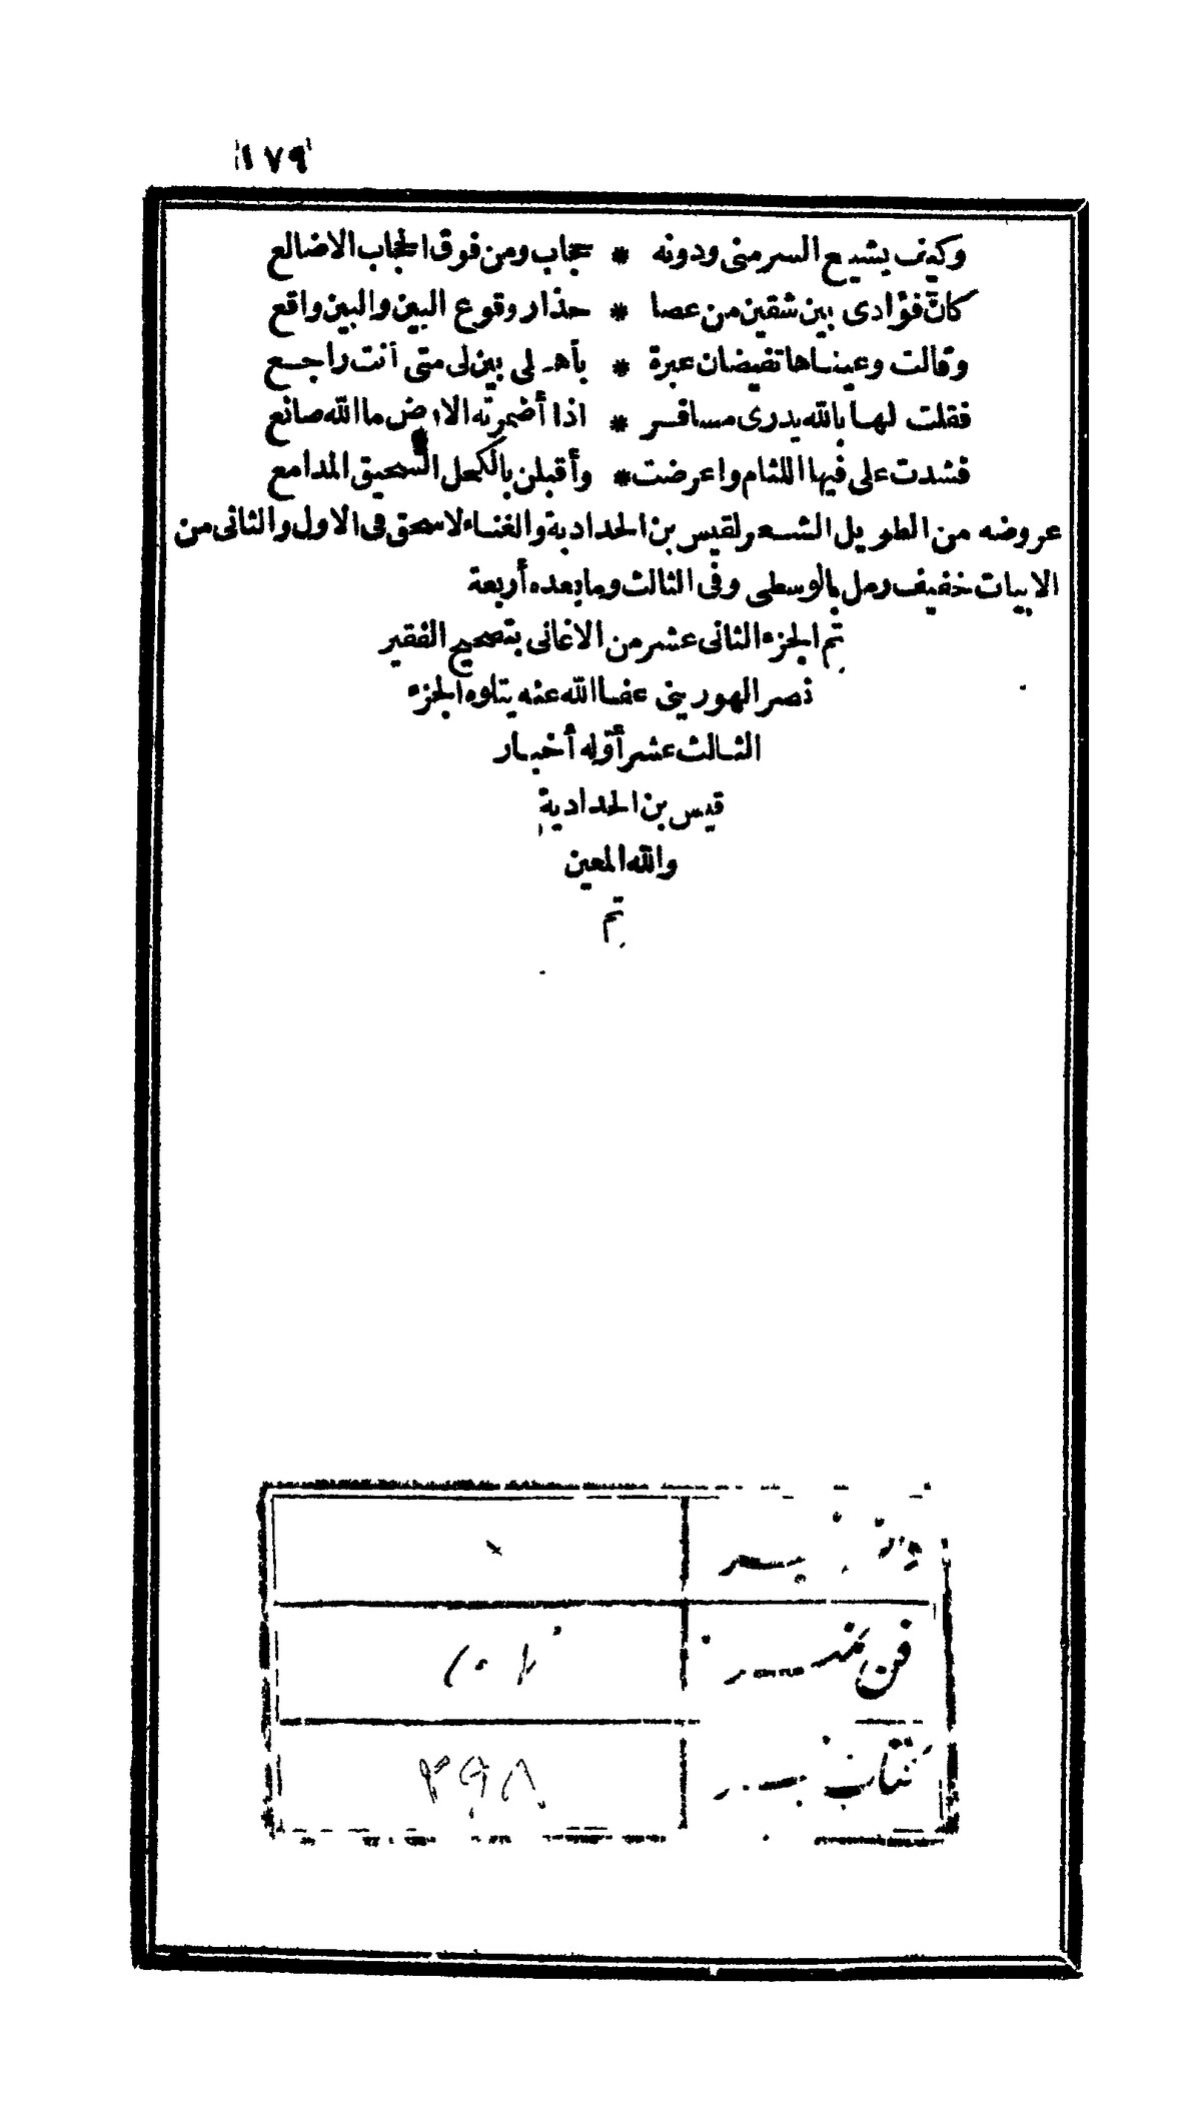 ١٧٩
وكيف يشيع السر منى ودونه * حجاب ومن فوق الحجاب الاضالع
كانّ فؤادى بين شقين من عصا * حذار وقوع البين والبين واقع
وقالت وعيناها تفيضان عبرة * بأهلى بين لى متى أنت راجع
فقلت لها بالله يدرى مسافر * اذا أضمرته الارض ما الله صانع
فشدت على فيها اللثام واعرضت * وأقبلن بالكحل السحيق المدامع
عروضه من الطويل الشعر لقيس بن الحدادية والغناء لاسحق فى الاول والثانى من
الابيات خفيف رمل بالوسطى وفى الثالث وما بعده أربعة
تم الجزء الثانى عشر من الاغانى بتصحيح الفقير
نصر الهورينى عفا الله عنه يتلوه الجزء
الثالث عشر أوّله أخبار
قيس بن الحدادية
والله المعين
تم
فن نمبر
كتاب نمبر ٣٩٨